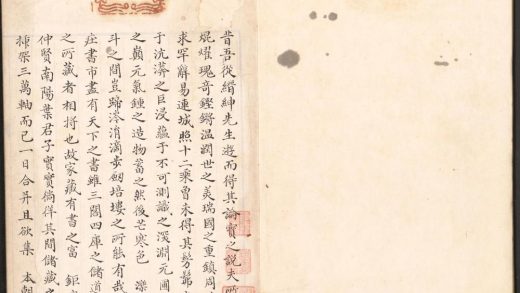 昔吾從縉紳先生遊而得其論寶之說夫
焜燿瑰奇鏗鏘温潤世之美瑞國之重鎮周
求罕辭易連城照十二乘曾未得其髣髴
於沆漭之巨浸蘊于不可測識之淵元圃
之巔元氣鍾之造物蓄之然後芒寒色
斗之間豈蹄涔消滴步培塿之所能有哉
在書市盡有天下之書雖三閣四庫之儲道
之所藏者相埒也故家藏有書之富 鉅
仲賢南陽葉君子實實倘佯其間儲藏之
插架三萬軸而已一日合并且欲集 本朝